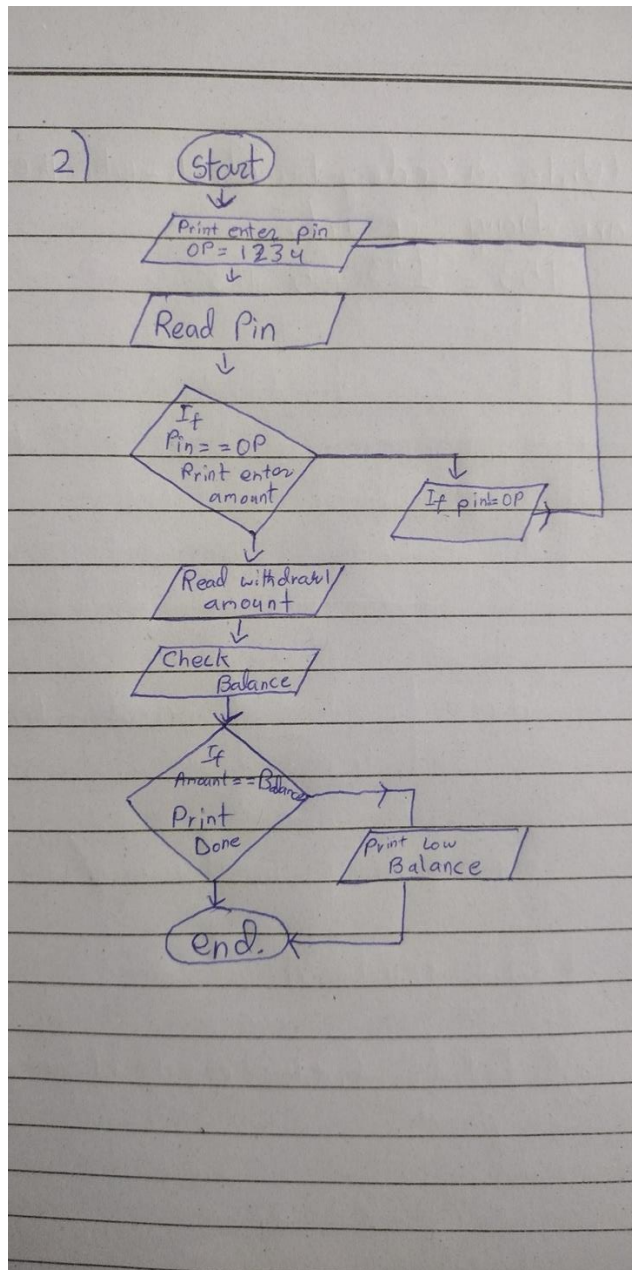 2)
Start
Print enter pin
OP = 1234
Read Pin
If
Pin==OP
Print enter
amount
If pin!=OP
Read withdrawl
amount
Check
Balance
If
Amount==Balance
Print
Done
Print Low
Balance
end.